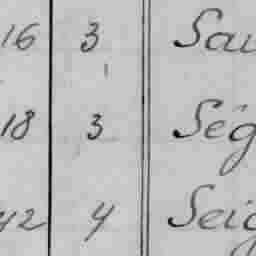 16 3 Sau
18 3 Ség
42 4 Seig